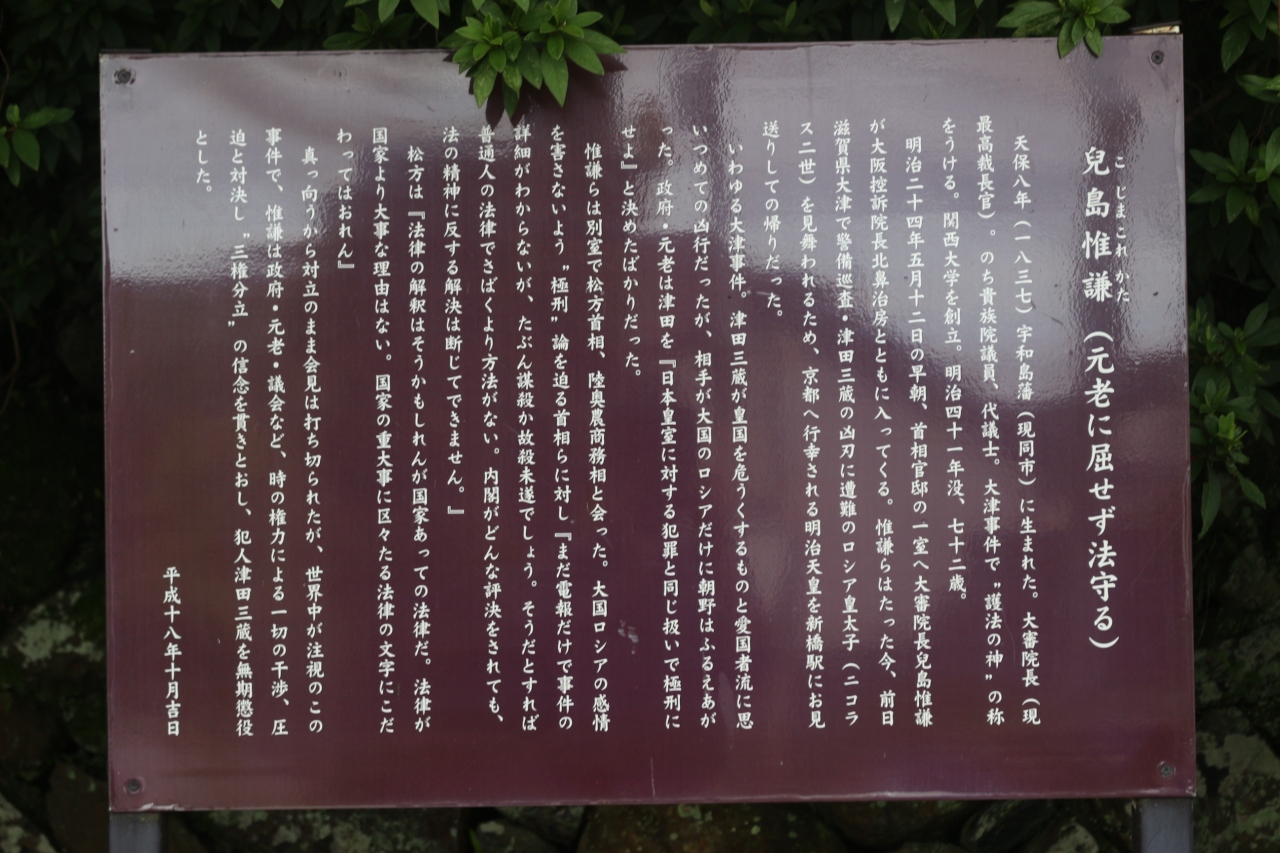 兒島惟謙（元老に屈せず法守る）
こじまこれかた
天保八年（一八三七）宇和島藩（現同市）に生まれた。大審院長（現
最高裁長官）。のち貴族院議員、代議士。大津事件で〝護法の神〟の称
をうける。関西大学を創立。明治四十一年没、七十二歳。
明治二十四年五月十二日の早朝、首相官邸の一室へ大審院長兒島惟謙
が大阪控訴院長北畠治房とともに入ってくる。惟謙らはたった今、前日
滋賀県大津で警備巡査・津田三蔵の凶刃に遭難のロシア皇太子（ニコラ
ス二世）を見舞われるため、京都へ行幸される明治天皇を新橋駅にお見
送りしての帰りだった。
いわゆる大津事件。津田三蔵が皇国を危うくするものと愛国者流に思
いつめての凶行だったが、相手が大国のロシアだけに朝野はふるえあが
った。政府・元老は津田を『日本皇室に対する犯罪と同じ扱いで極刑に
せよ』と決めたばかりだった。
惟謙らは別室で松方首相、陸奥農商務相と会った。大国ロシアの感情
を害さないよう〝極刑〟論を迫る首相らに対し『まだ電報だけで事件の
詳細がわからないが、たぶん謀殺か故殺未遂でしょう。そうだとすれば
普通人の法律でさばくより方法がない。内閣がどんな評決をされても、
法の精神に反する解決は断じてできません。』
松方は『法律の解釈はそうかもしれんが国家あっての法律だ。法律が
国家より大事な理由はない。国家の重大事に区々たる法律の文字にこだ
わってはおれん』
真っ向うから対立のまま会見は打ち切られたが、世界中が注視のこの
事件で、惟謙は政府・元老・議会など、時の権力による一切の干渉、圧
迫と対決し〝三権分立〟の信念を貫きとおし、犯人津田三蔵を無期懲役
とした。
平成十八年十月吉日